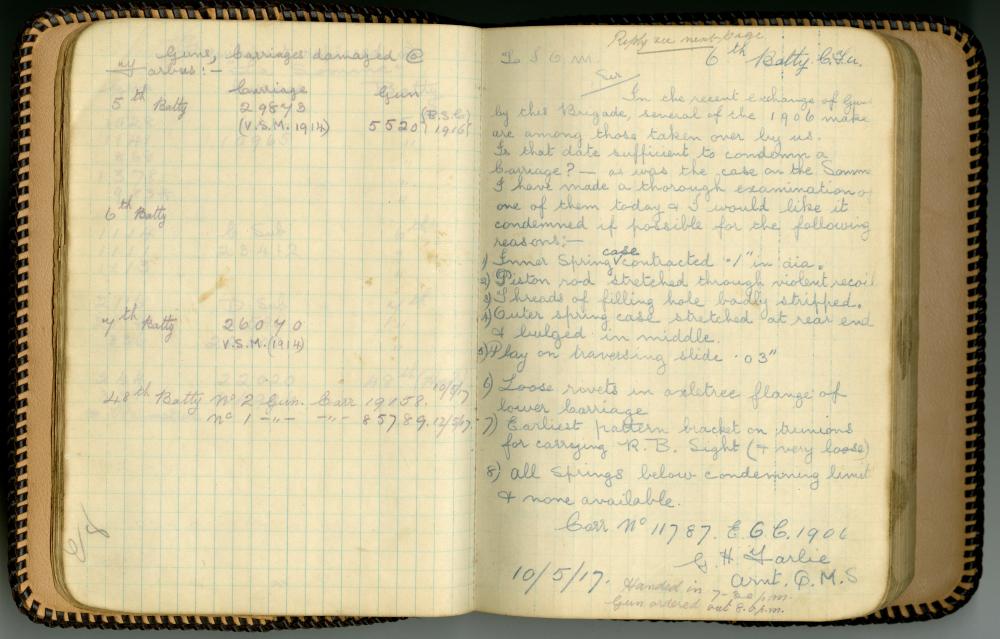 Guns, Carriages damaged @
arras:-
Carriage Gun
5th Batty 29873
(V.S.M. 1914) 5520 (E.S.C) 1916
6th Batty
7th Batty 26070
V.S.M. (1914)
48th Batty No 2 Gun. Carr 19158. 10/5/17
No 1 -"- -"- 85789. 12/5/17.
Reply see next page
I S O M. 6th Batty C.F.A.
Sir
In the recent exchange of Guns
by this Brigade, several of the 1906 make
are among those taken over by us.
Is that date sufficient to condemn a
Carriage? - as was the case on the Somme
I have made a thorough examination of
one of them today & I would like it
condemned if possible for the following
reasons:-
1) Inner Spring case contracted .1" in dia.
2) Piston rod stretched through violent recoil
3) Threads of filling hole badly stripped.
4) Outer spring case stretched at rear end
& bulged in middle.
5) Play on traversing slide .03"
6) Loose rivets in axletree flange of
lower Carriage
7) Earliest pattern bracket on trunions
for carrying R.B. Sight (& very loose)
8) all Springs below condemning limit
& none available.
Carr No 11787. E.O.C. 1906
G H Garlie
10/5/17. Armt. Q.M.S
Handed in 7-20 pm.
Gun ordered out 8.0 p.m.